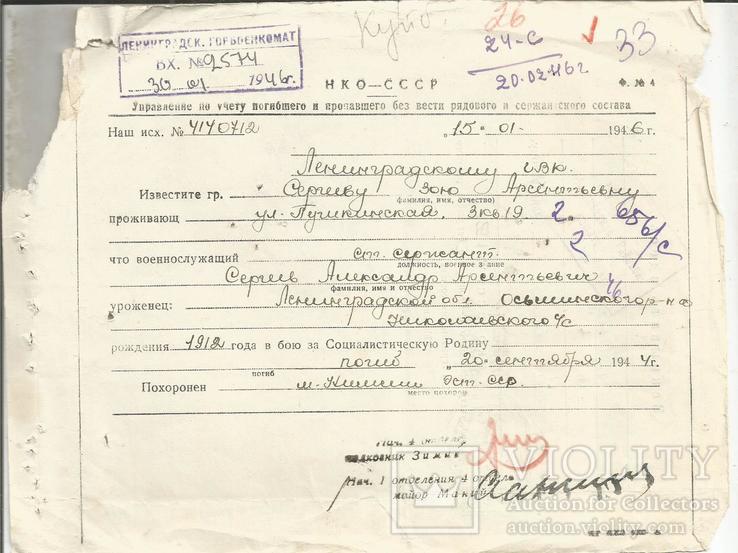 ЛЕНИНГРАДСК. ГОРВОЕНКОМАТ
ВХ. № 9574
30 01 1946г.
Куйб.
26
24-С
20.02.46г
33
НКО—СССР
Ф. № 4
Управление по учету погибшего и пропавшего без вести рядового и сержантского состава
Наш исх. № 4140712 „15" 01 1946 г.
Ленинградскому ГВК.
Известите гр. Сергееву Зою Арсентьевну
фамилия, имя, отчество)
проживающ ул. Пушкинская, 3 кв 19 2. 656/с
2
что военнослужащий ст. сержант
должность, военное звание
Сергеев Александр Арсентьевич
фамилия, имя и отчество
46
уроженец: Ленинградской обл. Осьминского р-на
Николаевского с/с
рождения 1912 года в бою за Социалистическую Родину
погиб „20" сентября 1944г.
погиб
Похоронен м. Эст. сср.
место похорон
Нач. 4
полковник Зимин
Нач. 1 отделения 4
майор
VIOLITY
Auction for Collectors
auction.violity.com